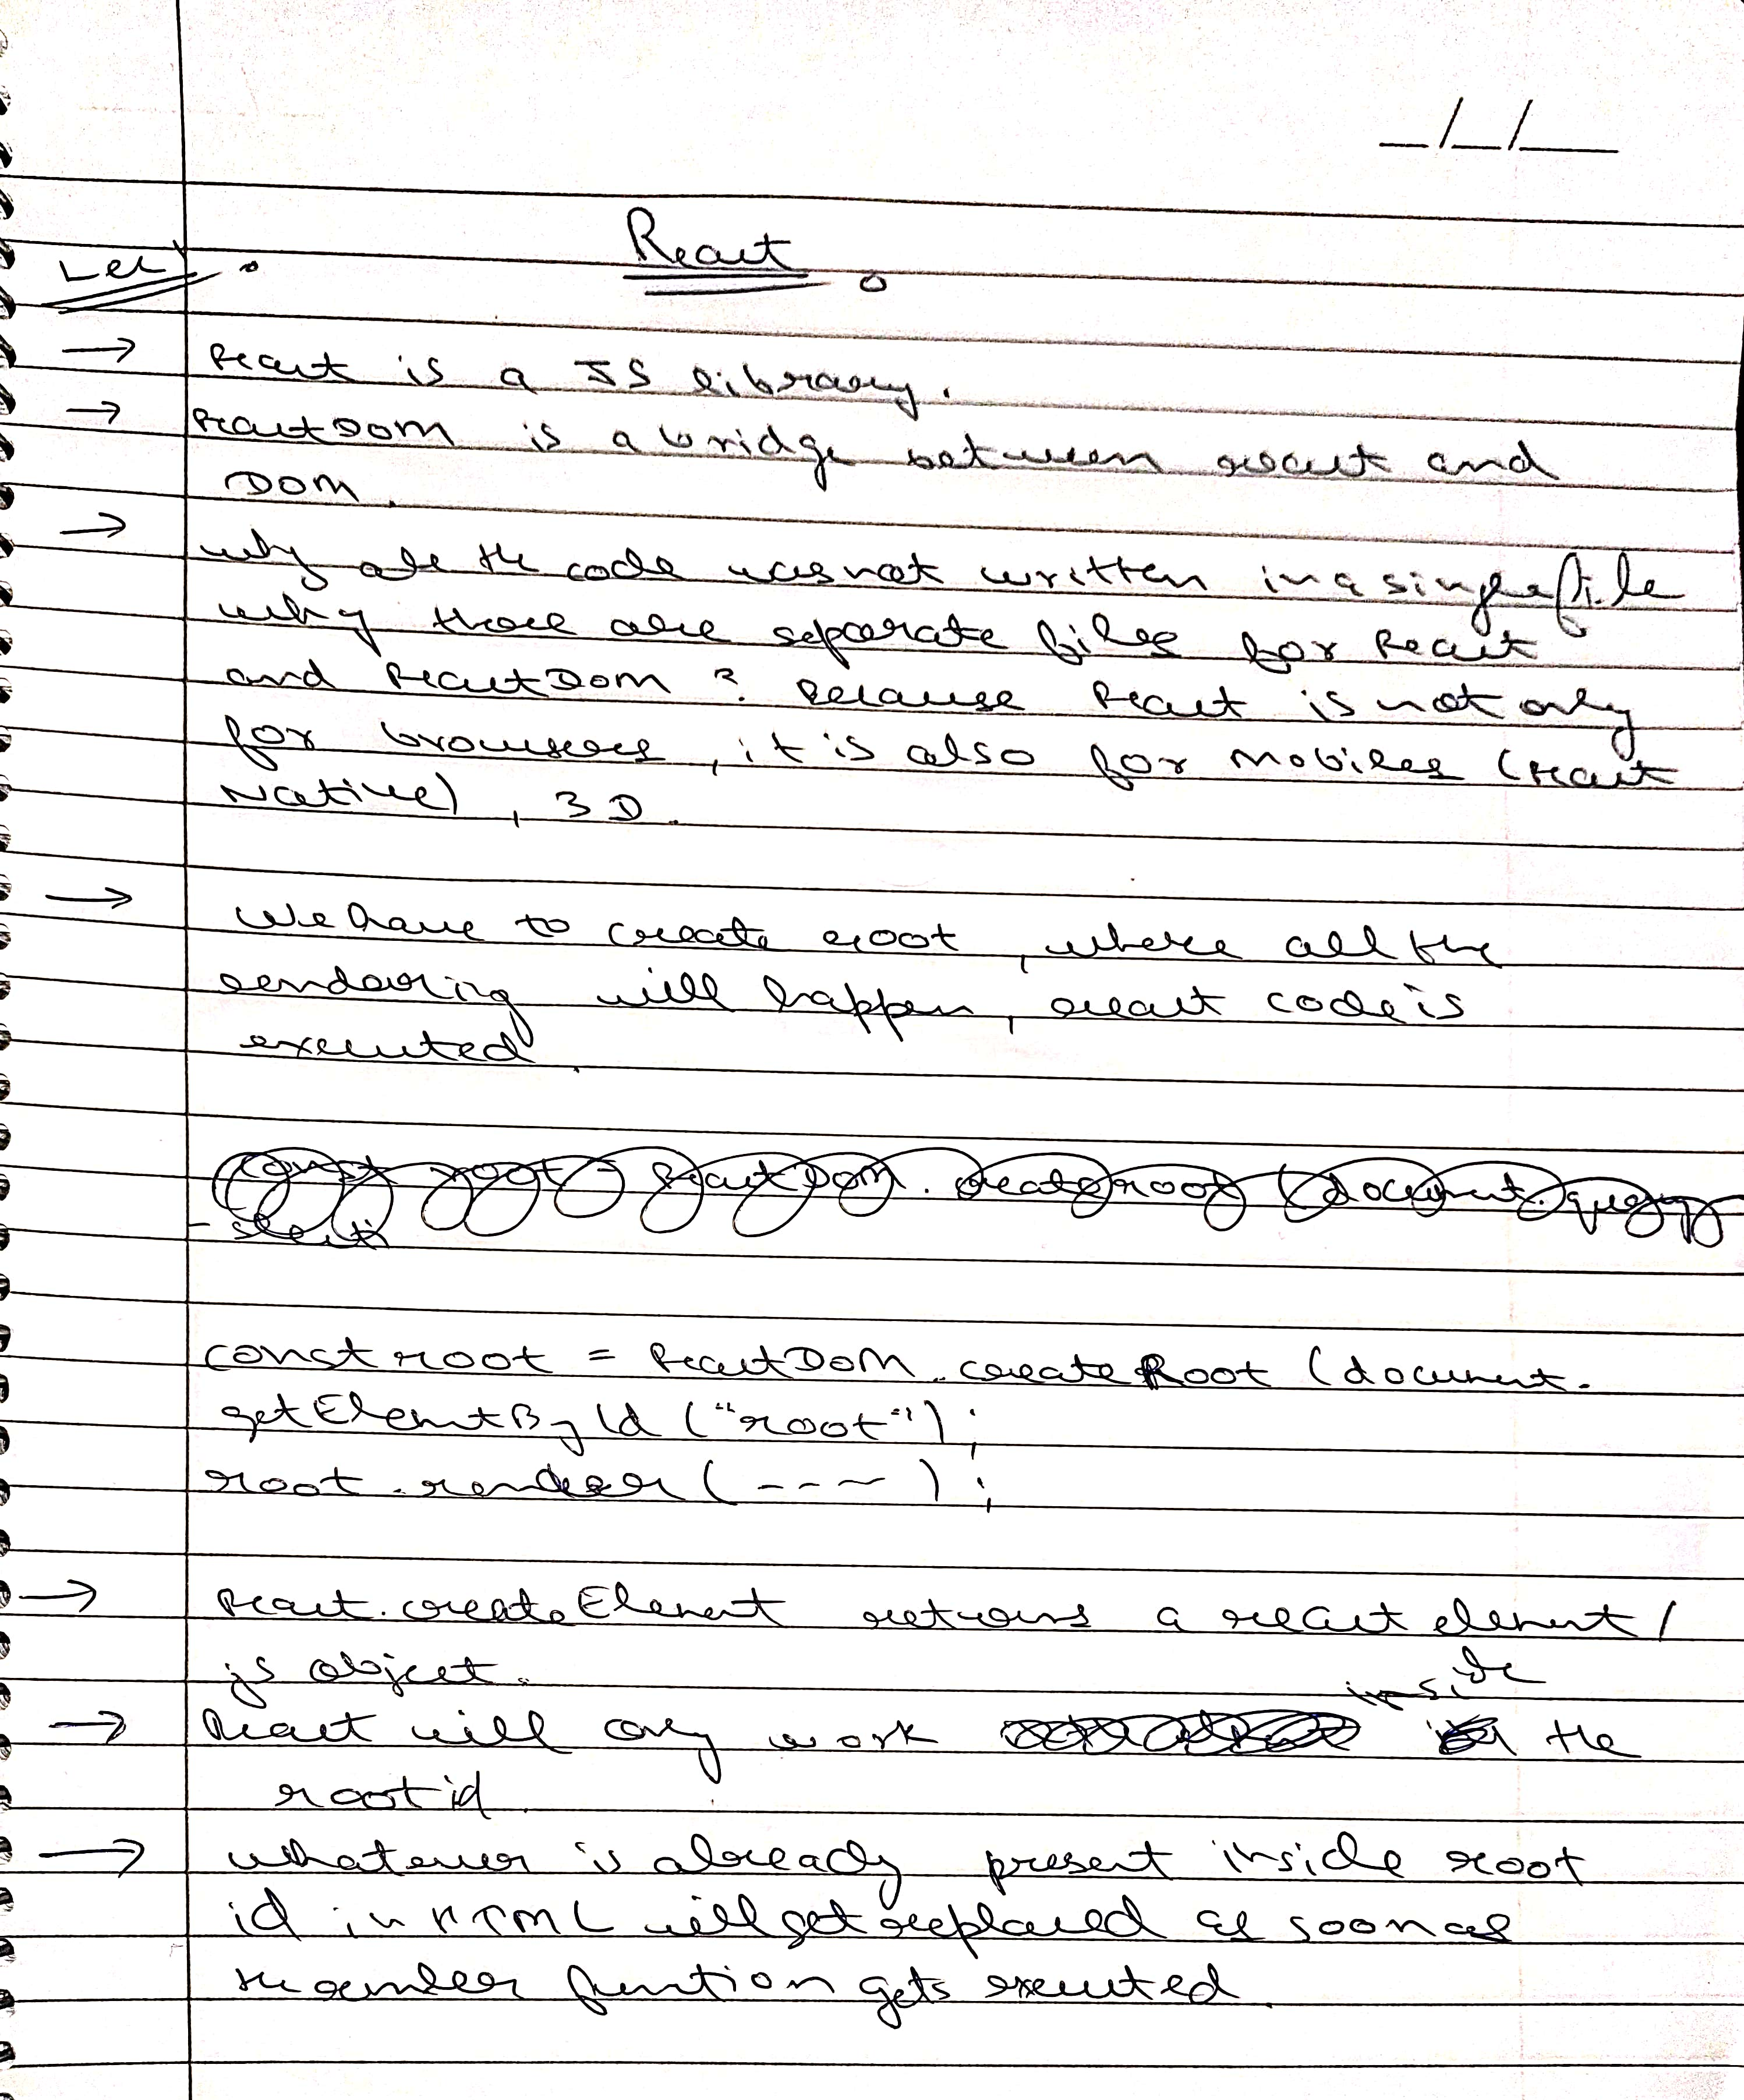 _/_/__
React
Lec 1.
→ React is a JS library.
→ ReactDOM is a bridge between react and
DOM.
→ why all the code was not written in a single file
why there are separate files for React
and ReactDOM? Because React is not only
for browsers, it is also for Mobiles (React
Native), 3D.
→ We have to create root, where all the
rendering will happen, react code is
executed.
const root = ReactDOM.createroot (document.query
-selecti
const root = ReactDOM.createRoot (document.
getElementById ("root");
root.render(----);
→ React.createElement returns a react element/
js object.
inside
→ React will only work the
root id.
→ whatever is already present inside root
id in HTML will get replaced as soon as
the render function gets executed.